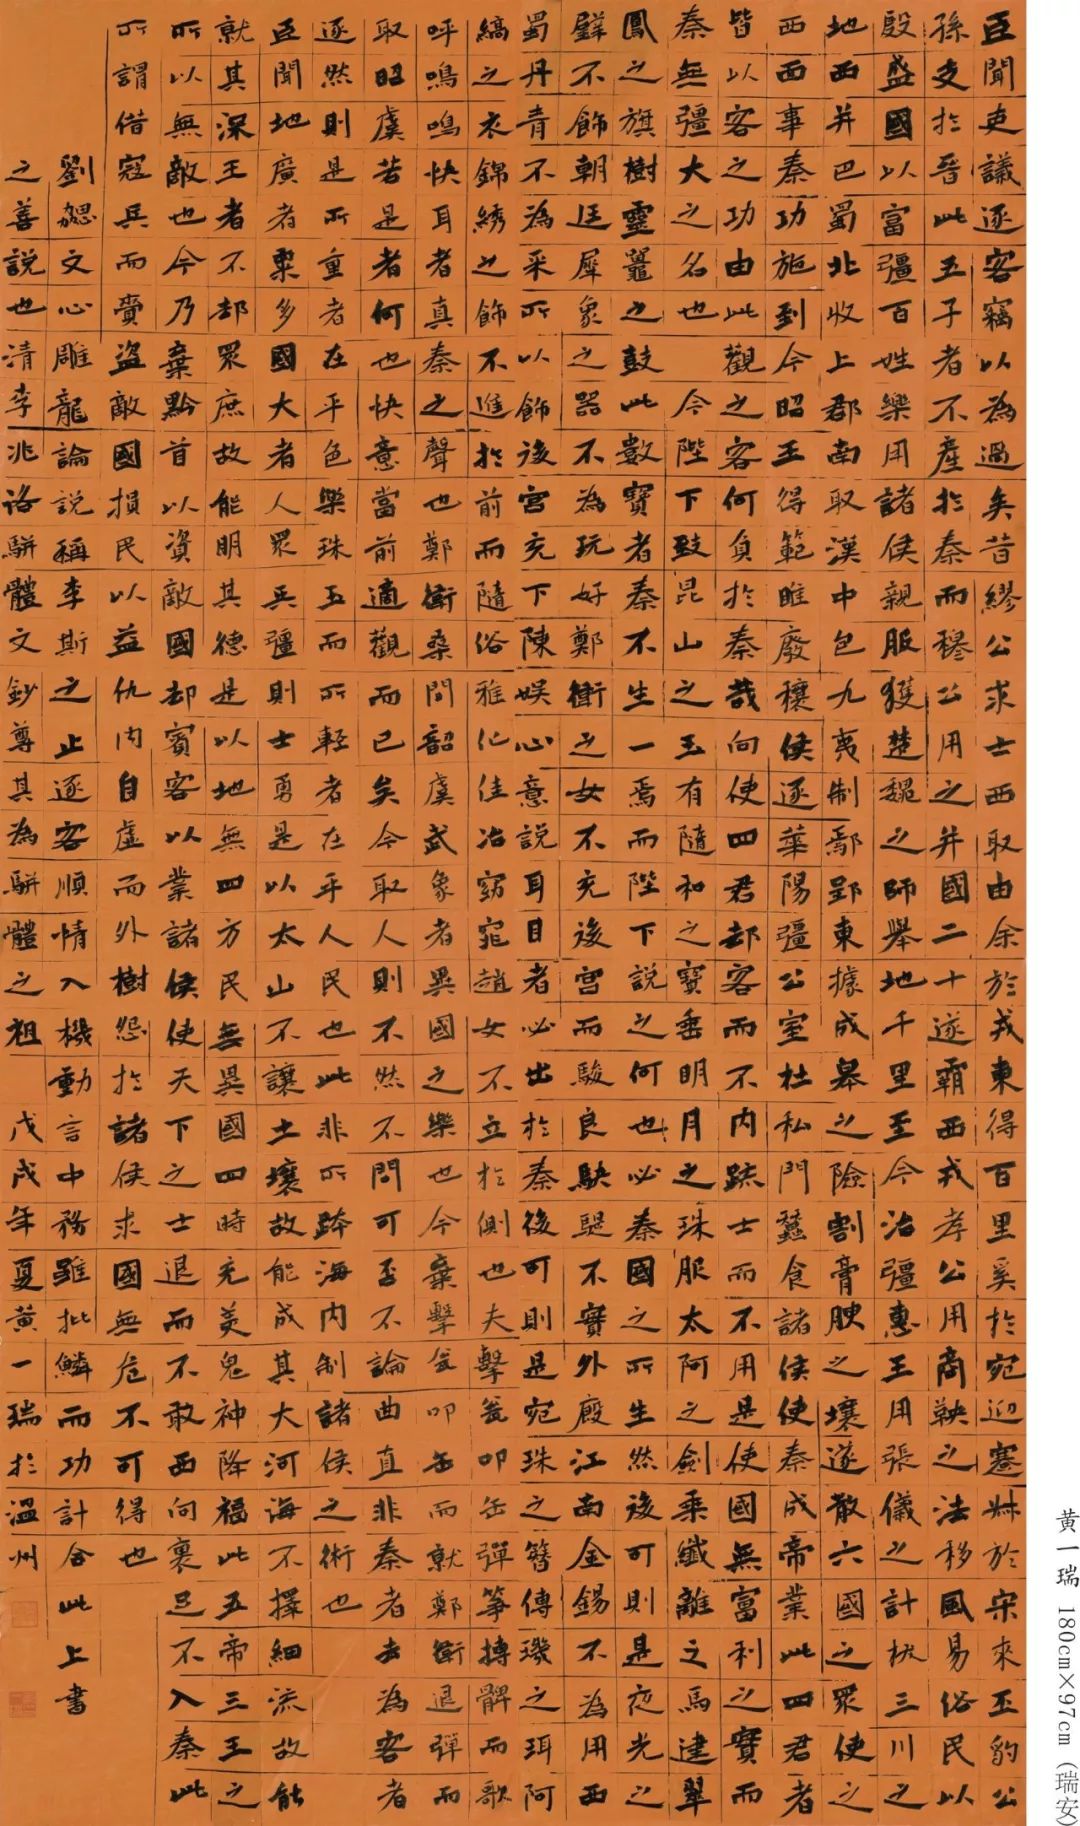 臣聞吏議逐客竊以為過矣昔繆公求士西取由余於戎東得百里奚於宛迎蹇叔於宋來丕豹公
孫支於晉此五子者不產於秦而穆公用之并國二十遂霸西戎孝公用商鞅之法移風易俗民以
殷盛國以富彊百姓樂用諸侯親服獲楚魏之師舉地千里至今治彊惠王用張儀之計拔三川之
地西并巴蜀北收上郡南取漢中包九夷制鄢郢東據成皋之險割膏腴之壤遂散六國之眾使之
西面事秦功施到今昭王得範雎廢穰侯逐華陽彊公室杜私門蠶食諸侯使秦成帝業此四君者
皆以客之功由此觀之客何負於秦哉向使四君卻客而不內疏士而不用是使國無富利之實而
秦無彊大之名也 今陛下致昆山之玉有隨和之寶垂明月之珠服太阿之劍乘纖離之馬建翠
鳳之旗樹靈鼉之鼓此數寶者秦不生一焉而陛下說之何也必秦國之所生然後可則是夜光之
璧不飾朝廷犀象之器不為玩好鄭衛之女不充後宮而駿良駃騠不實外廄江南金錫不為用西
蜀丹青不為采所以飾後宮充下陳娛心意說耳目者必出於秦後可則是宛珠之簪傅璣之珥阿
縞之衣錦綉之飾不進於前而隨俗雅化佳冶窈窕趙女不立於側也夫擊瓮叩缶彈箏搏髀而歌
呼嗚嗚快耳者真秦之聲也鄭衛桑間韶虞武象者異國之樂也今棄擊瓮叩缶而就鄭衛退彈而
取昭虞若是者何也快意當前適觀而已矣今取人則不然不問可否不論曲直非秦者去為客者
逐然則是所重者在乎色樂珠玉而所輕者在乎人民也此非所跨海內制諸侯之術也
臣聞地廣者粟多國大者人眾兵彊則士勇是以太山不讓土壤故能成其大河海不擇細流故能
就其深王者不卻眾庶故能明其德是以地無四方民無異國四時充美鬼神降福此五帝三王之
所以無敵也今乃棄黔首以資敵國卻賓客以業諸侯使天下之士退而不敢西向裹足不入秦此
所謂借寇兵而賫盜敵國損民以益仇內自虛而外樹怨於諸侯求國無危不可得也
劉勰文心雕龍論說稱李斯之止逐客順情入機動言中務雖批鱗而功計合此上書
之善說也清李兆洛駢體文鈔尊其為駢體之祖 戊戌年夏黃一瑞於溫州
黄一瑞 180cm×97cm（瑞安）